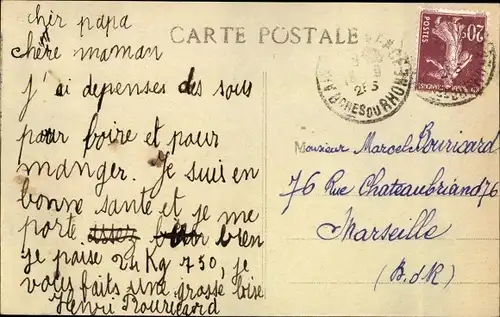 cher papa
chère maman
j ai depenses des sous
pour boire et pour
manger. Je suis en
bonne sante et je me
porte assez bien bien
je paise 24 Kg 750, je
vous faits une grosse bise
Henri Rouricard
CARTE POSTALE
BCHES DU RHONE
20c
POSTES
Monsieur Marcel Rouricard
76 Rue Chateaubriand 76
Marseille
(B.dR)